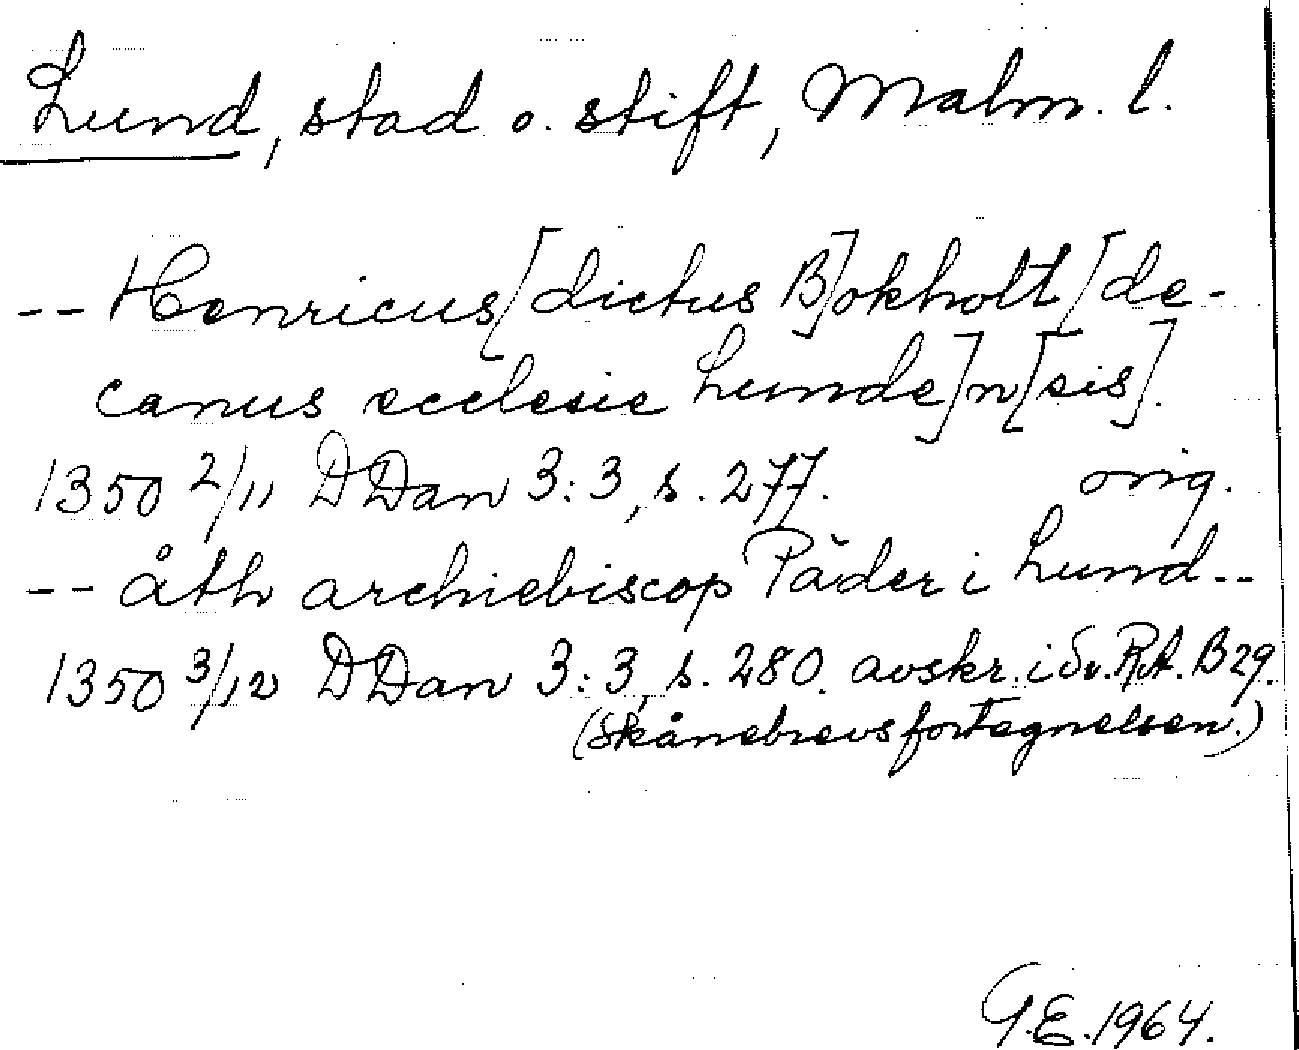 Lund, stad o. stift, Malm. l.
-- Henricus [dictus B]okholt [de-
canus ecclesie Lunde]n[sis].
1350 2/11 DDan 3:3, s. 277. orig.
-- åth archiebiscop Päder i Lund --
1350 3/12 DDan 3:3, s. 280. avskr. i Sv. R.A. B 29.
(Skånebrevsfortegnelsen.)
G.E. 1964.